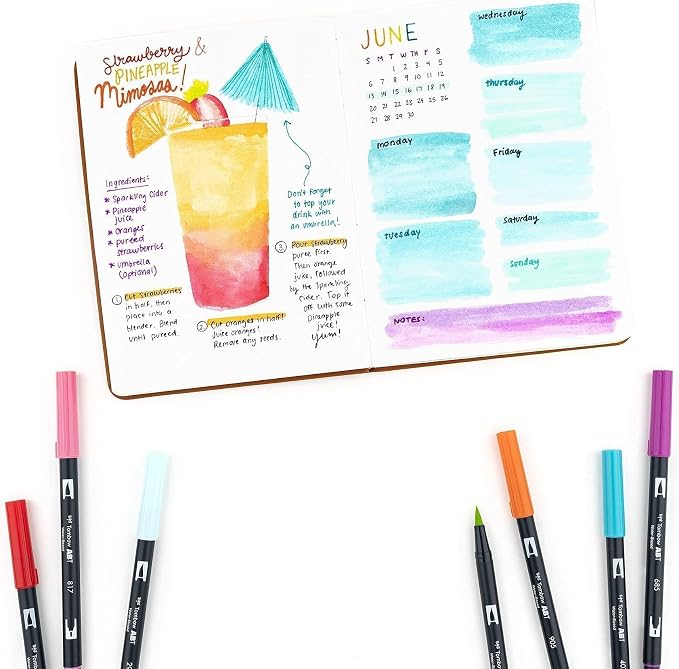 Strawberry &
PINEAPPLE
Mimosas!
Ingredients:
* Sparkling Cider
* Pineapple
juice
* Oranges
* pureed
strawberries
* umbrella
(optional)
① Cut Strawberries
in half, then
place into a
blender. Blend
until pureed.
② Cut oranges in half!
Juice oranges!
Remove any seeds.
Don't Forget
to top your
drink with
an umbrella!
③ Pour Strawberry
puree first.
Then orange
juice, followed
by the sparkling
cider. Top it
off with some
pineapple
juice!
Yum!
JUNE
S M T W TH F S
1 2 3 4 5
6 7 8 9 10 11 12
13 14 15 16 17 18 19
20 21 22 23 24 25 26
27 28 29 30
monday
tuesday
wednesday
thursday
Friday
Saturday
Sunday
NOTES:
Tombow ABT
Tombow ABT
817
Tombow ABT
Tombow
Tombow ABT
905
Tombow ABT
Tombow ABT
685